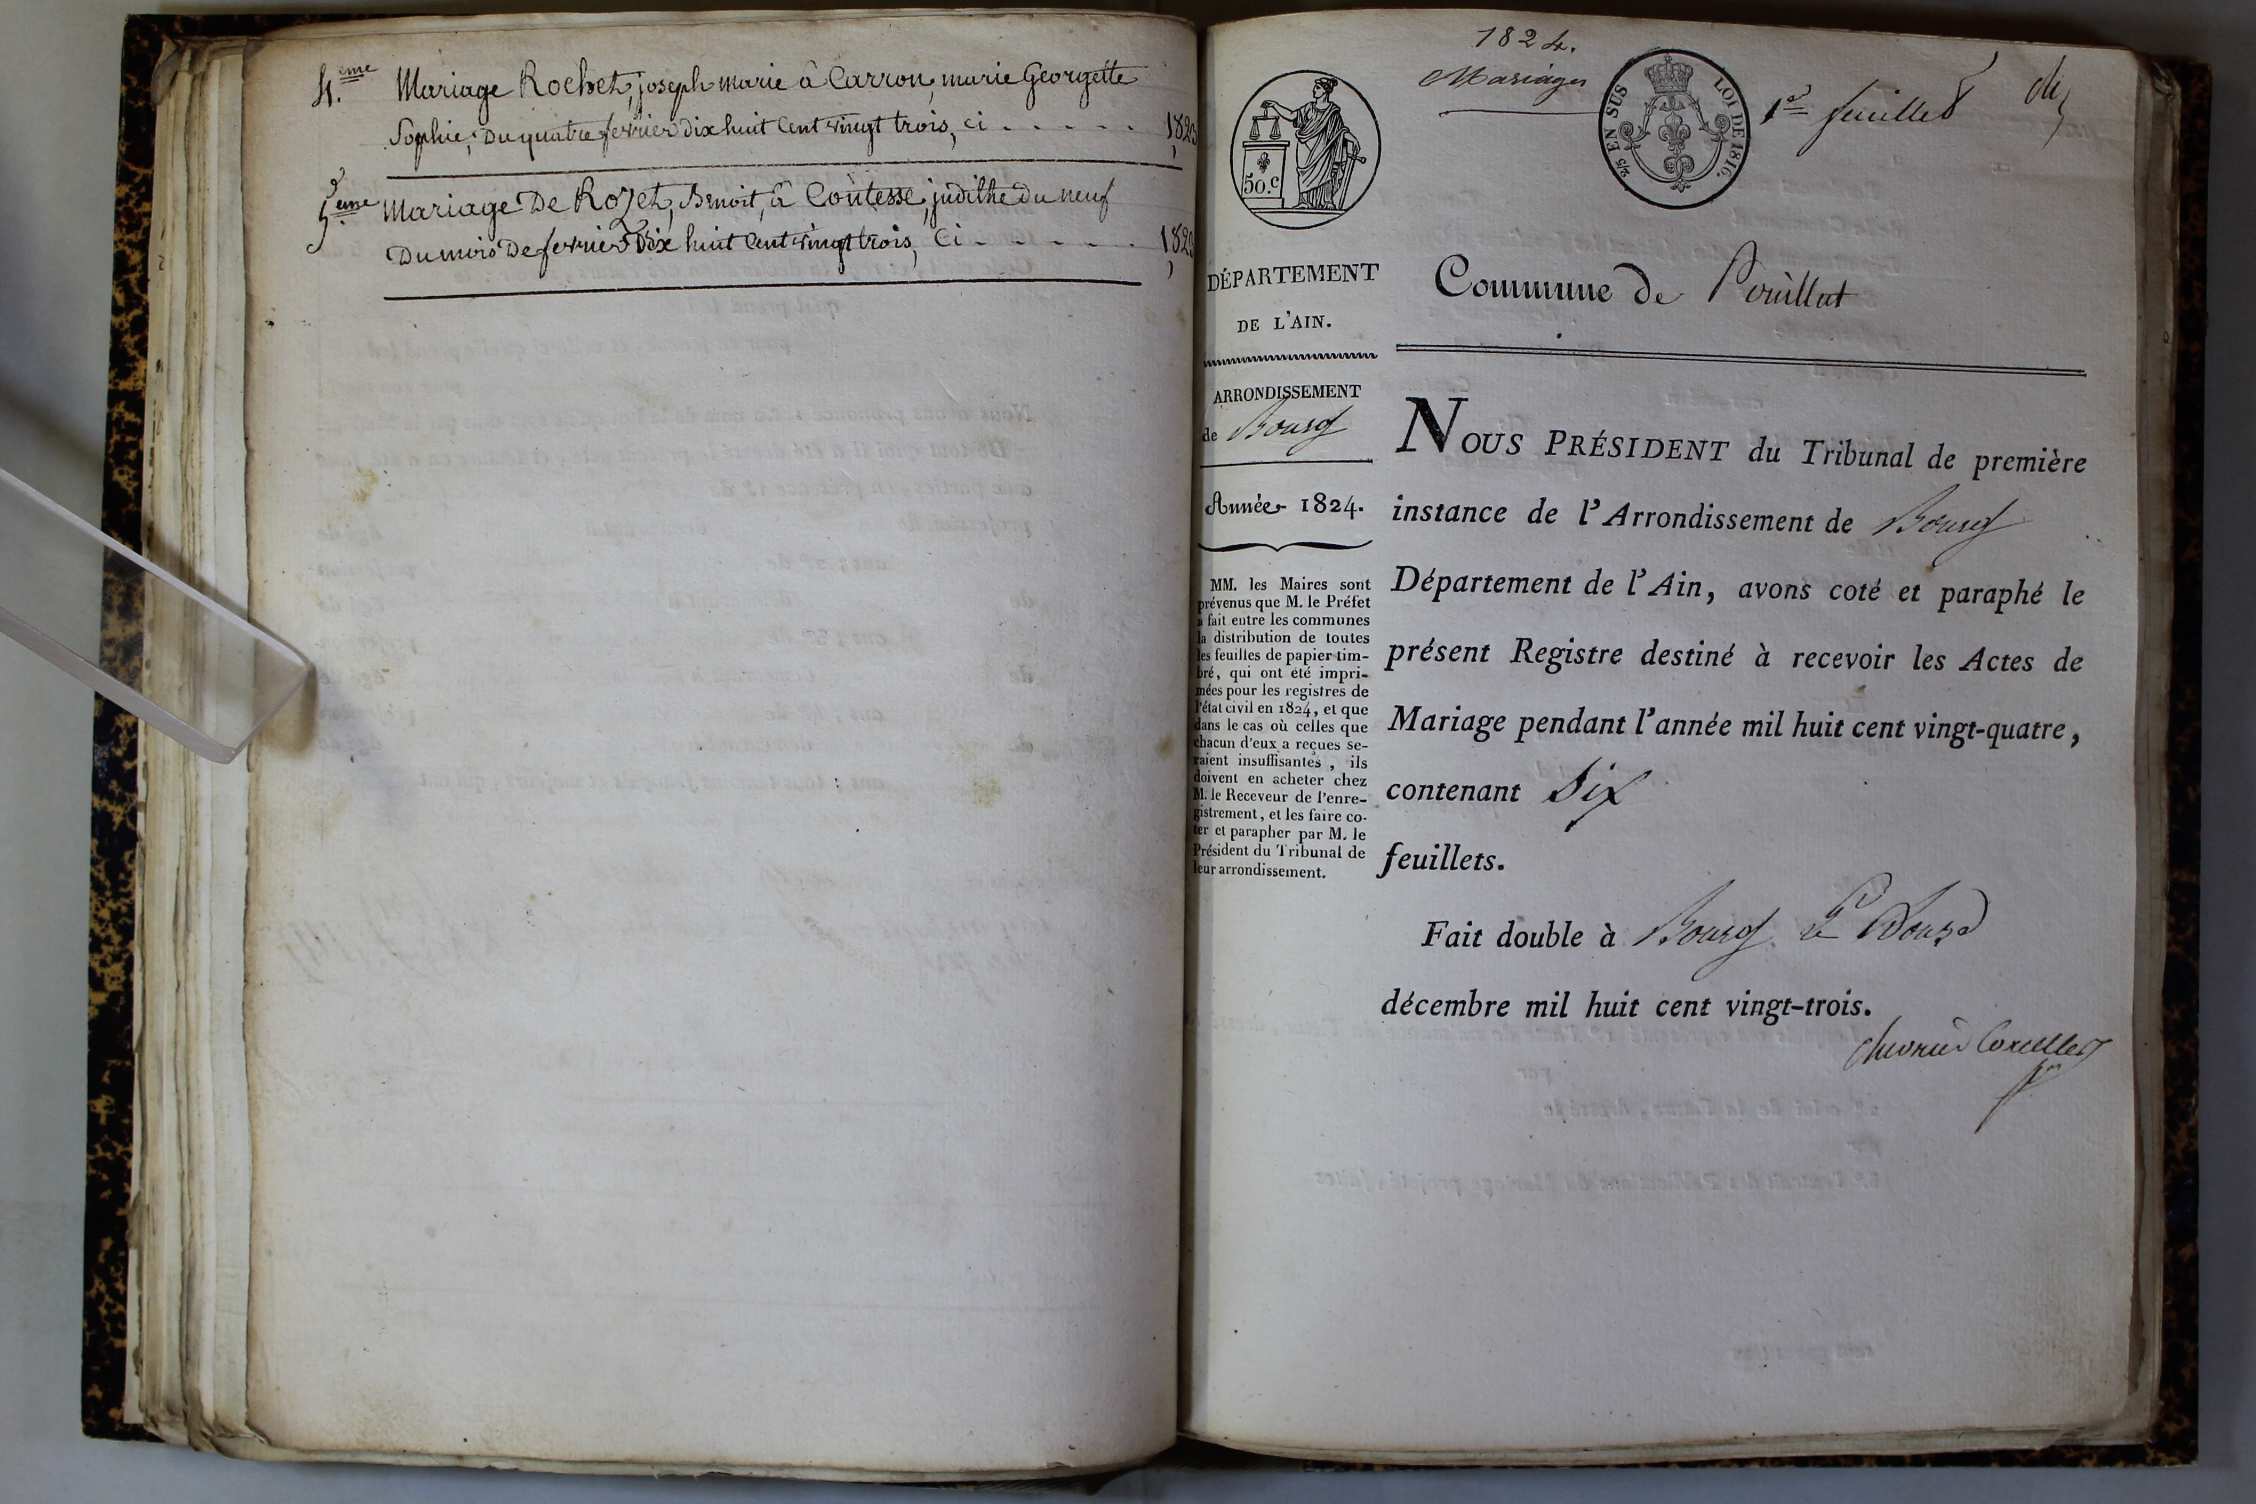 4.ème Mariage Rochet, joseph marie à Carron, marie Georgette
Sophie, Du quatre fevrier dix huit Cent vingt trois, ci . . . . . . 1823
5.ème Mariage De Rozet, Benoit, à Coutesse, judithe du neuf
Du mois De fevrier Dix huit Cent vingt trois, Ci . . . . . . 1823
1824.
Mariages
1er feuillet
50.c
2/5 EN SUS LOI DE 1816.
DÉPARTEMENT
DE L'AIN.
ARRONDISSEMENT
de Bourg
Année 1824.
MM. les Maires sont
prévenus que M. le Préfet
a fait entre les communes
la distribution de toutes
les feuilles de papier tim-
bré, qui ont été impri-
mées pour les registres de
l'état civil en 1824, et que
dans le cas où celles que
chacun d'eux a reçues se-
raient insuffisantes, ils
doivent en acheter chez
M. le Receveur de l'enre-
gistrement, et les faire co-
ter et parapher par M. le
Président du Tribunal de
leur arrondissement.
Commune de Pouillat
NOUS PRÉSIDENT du Tribunal de première
instance de l'Arrondissement de Bourg
Département de l'Ain, avons coté et paraphé le
présent Registre destiné à recevoir les Actes de
Mariage pendant l'année mil huit cent vingt-quatre,
contenant Six
feuillets.
Fait double à Bourg le Douze
décembre mil huit cent vingt-trois.